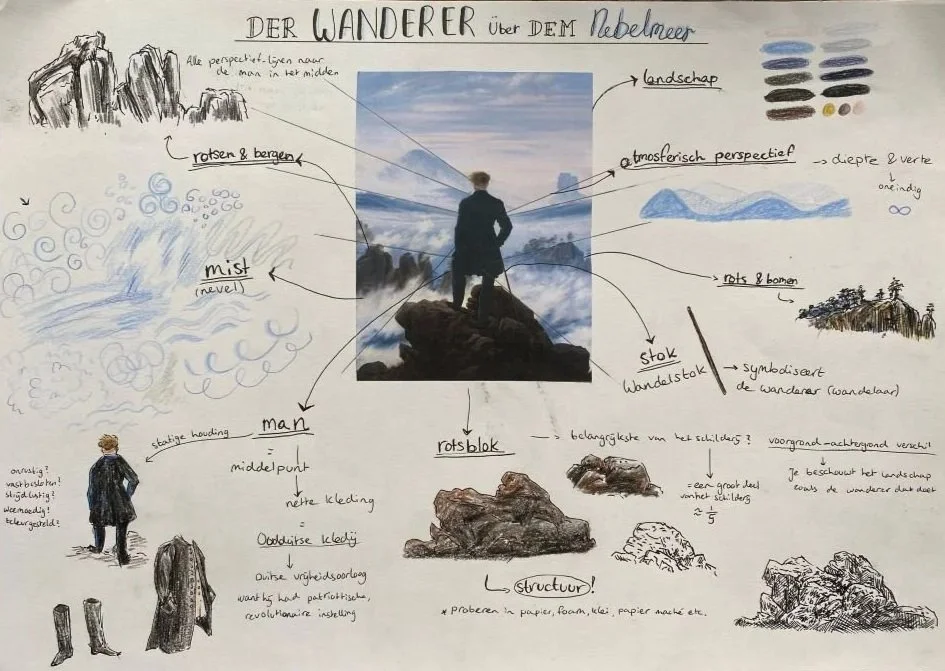 DER WANDERER über DEM Nebelmeer
Alle perspectief-lijnen naar
de man in het midden
landschap
rotsen & bergen
atmosferisch perspectief → diepte & verte
↓
oneindig
∞
mist
(nevel)
rots & bomen
stok
Wandelstok
→ symboliseert
de wanderer (wandelaar)
man
statige houding
=
middelpunt
nette kleding
=
Oudduitse kledij
Duitse vrijheidsoorlog
want hij had patriottische,
revolutionaire instelling
onrustig?
vastbesloten?
strijdlustig?
weemoedig?
teleurgesteld?
rotsblok
→ belangrijkste van het schilderij?
= een groot deel
van het schilderij
≈ 1/5
voorgrond-achtergrond verschil
Je beschouwt het landschap
zoals de wanderer dat doet
structuur!
* Proberen in papier, foam, klei, papier maché etc.